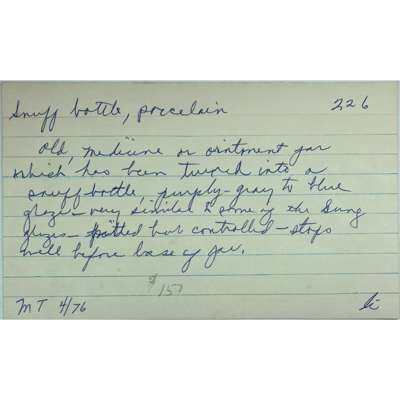 Snuff bottle, porcelain 226
Old, medicine or ointment jar
which has been turned into a
snuff-bottle, purply-gray to blue
glaze - very similar to some of the Sung
glazes - pitted but controlled - stops
well before base of jar.
$157
MT 4/76